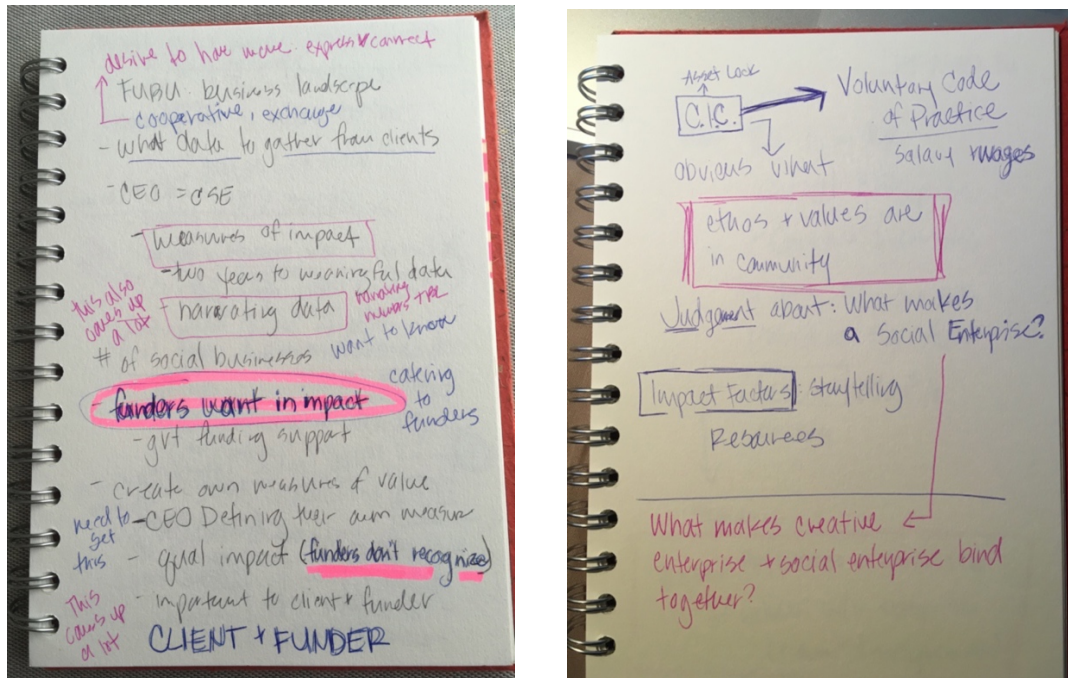 desire to have more express + connect
FUBU business landscape
cooperative, exchange
- what data to gather from clients
- CEO = CSE
- measures of impact
- two years to meaningful data
This also
comes up
a lot
- narrating data
narrating
numbers type
want to know
# of social businesses
catering
to
funders
- funders want in impact
- gvt funding support
- create own measures of value
need to
get
this
- CEO Defining their own measure
- qual impact (funders don't recognize)
- important to client + funder
This
comes up
a lot
CLIENT + FUNDER
Asset Lock
C.I.C.
Voluntary Code
of Practice
Salary + wages
obvious
ethos + values are
in community
Judgement about: What makes
a Social Enterprise?
Impact Factors: storytelling
Resources
What makes creative
enterprise + social enterprise bind
together?